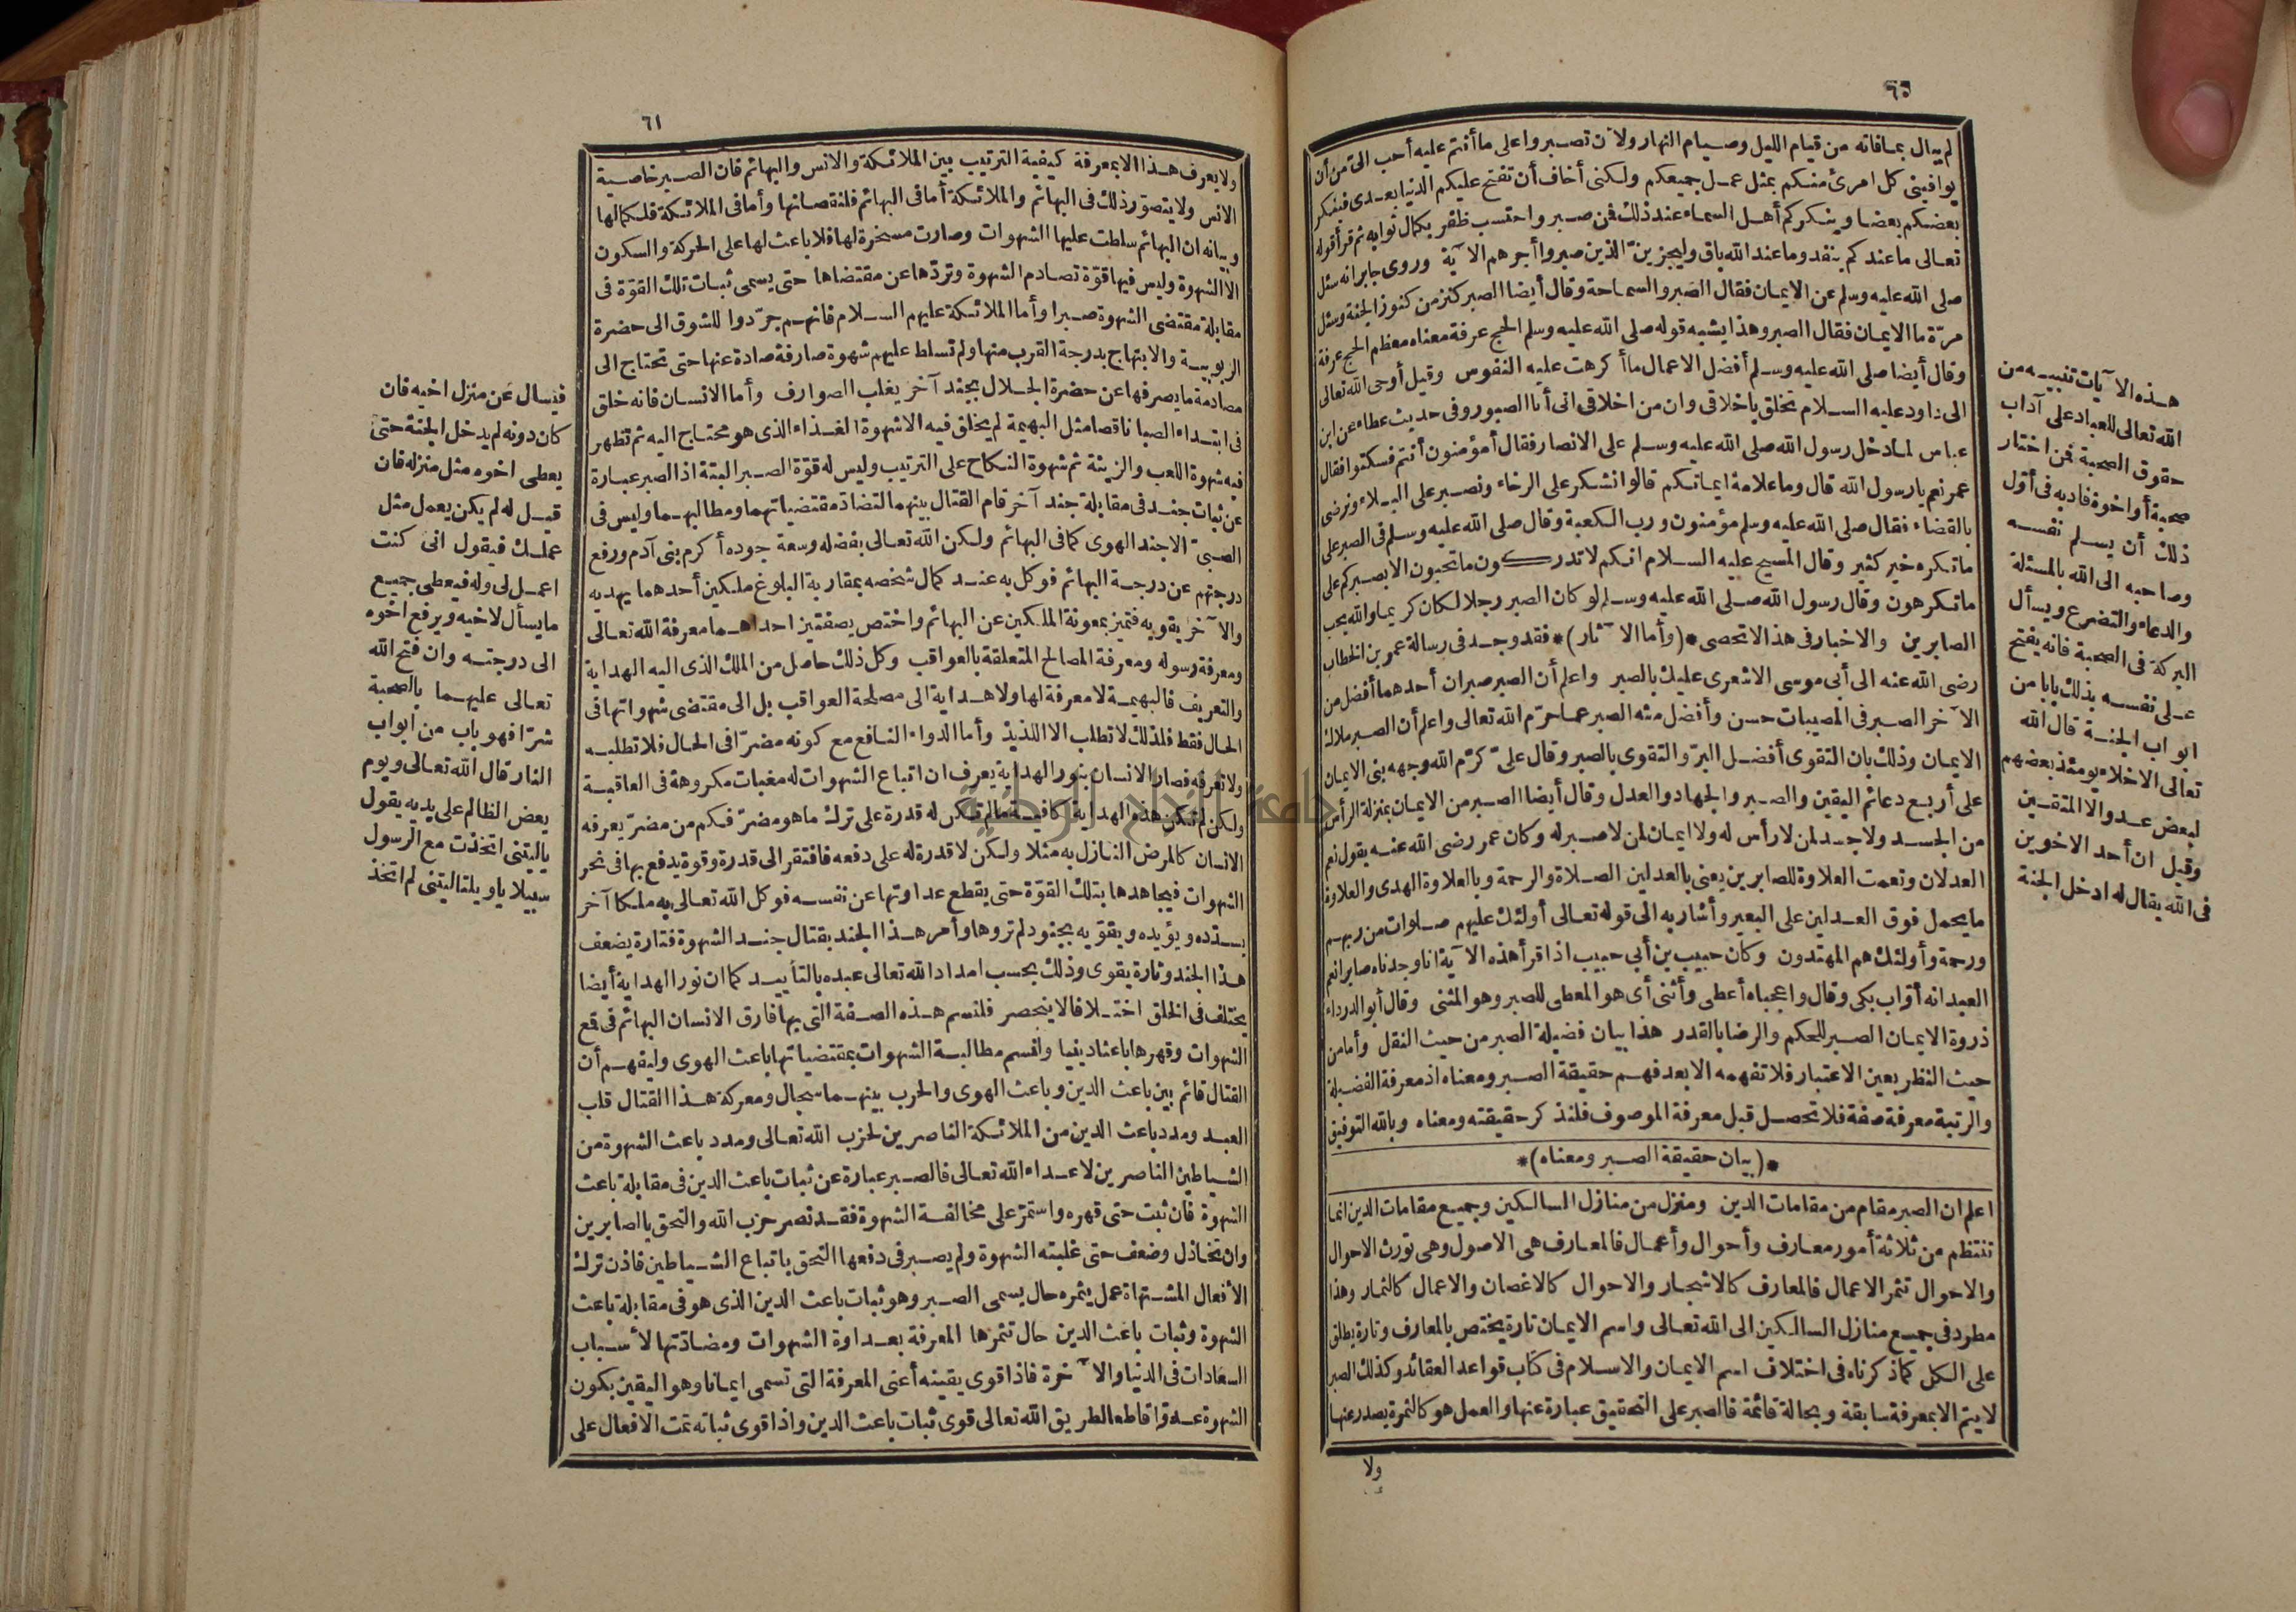 ٦٠
لم يبال بما فاته من قيام الليل وصيام النهار ولأن تصبروا على ما أنتم عليه أحب الى من أن
يوافيني كل امرئ منكم بمثل عمل جميعكم ولكني أخاف أن تفتح عليكم الدنيا بعدى فينكر
بعضكم بعضا وينكركم أهل السماء عند ذلك فمن صبر واحتسب ظفر بكمال ثوابه ثم قرأ قوله
تعالى ما عندكم ينفد وما عند الله باق وليجزينّ الذين صبروا أجرهم الآية وروى جابر انه سئل
صلى الله عليه وسلم عن الايمان فقال الصبر والسماحة وقال أيضا الصبر كنز من كنوز الجنة وسئل
مرّة ما الايمان فقال الصبر وهذا يشبه قوله صلى الله عليه وسلم الحج عرفة معناه معظم الحج عرفة
وقال أيضا صلى الله عليه وسلم أفضل الاعمال ما أكرهت عليه النفوس وقيل أوحى الله تعالى
الى داود عليه السلام تخلق باخلاقى وان من اخلاقى انى أنا الصبور وفى حديث عطاء عن ابن
عباس لما دخل رسول الله صلى الله عليه وسلم على الانصار فقال أمؤمنون أنتم فسكتوا فقال
عمر نعم يا رسول الله قال وما علامة ايمانكم قالوا نشكر على الرخاء ونصبر على البلاء ونرضى
بالقضاء فقال صلى الله عليه وسلم مؤمنون ورب الكعبة وقال صلى الله عليه وسلم فى الصبر على
ما تكره خير كثير وقال المسيح عليه السلام انكم لا تدركون ما تحبون الا بصبركم على
ما تكرهون وقال رسول الله صلى الله عليه وسلم لو كان الصبر رجلا لكان كريما والله يحب
الصابرين والاخبار فى هذا لا تحصى *(وأما الآثار)* فقد وجد فى رسالة عمر بن الخطاب
رضى الله عنه الى أبى موسى الاشعرى عليك بالصبر واعلم أن الصبر صبران أحدهما أفضل من
الآخر الصبر فى المصيبات حسن وأفضل منه الصبر عما حرّم الله تعالى واعلم أن الصبر ملاك
الايمان وذلك بان التقوى أفضل البرّ والتقوى بالصبر وقال علىّ كرّم الله وجهه بنى الايمان
على أربع دعائم اليقين والصبر والجهاد والعدل وقال أيضا الصبر من الايمان بمنزلة الرأس
من الجسد ولا جسد لمن لا رأس له ولا ايمان لمن لا صبر له وكان عمر رضى الله عنه يقول نعم
العدلان ونعمت العلاوة للصابرين يعنى بالعدلين الصلاة والرحمة وبالعلاوة الهدى والعلاوة
ما يحمل فوق العدلين على البعير وأشار به الى قوله تعالى أولئك عليهم صلوات من ربهم
ورحمة وأولئك هم المهتدون وكان حبيب بن أبى حبيب اذا قرأ هذه الآية انا وجدناه صابرا نعم
العبد انه أوّاب بكى وقال واعجباه أعطى وأثنى أى هو المعطى للصبر وهو المثنى وقال أبو الدرداء
ذروة الايمان الصبر للحكم والرضا بالقدر هذا بيان فضيلة الصبر من حيث النقل وأما من
حيث النظر بعين الاعتبار فلا تفهمه الا بعد فهم حقيقة الصبر ومعناه اذ معرفة الفضيلة
والرتبة معرفة صفة فلا تحصل قبل معرفة الموصوف فلنذكر حقيقته ومعناه وبالله التوفيق
*(بيان حقيقة الصبر ومعناه)*
اعلم ان الصبر مقام من مقامات الدين ومنزل من منازل السالكين وجميع مقامات الدين انما
تنتظم من ثلاثة أمور معارف وأحوال وأعمال فالمعارف هى الاصول وهى تورث الاحوال
والاحوال تثمر الاعمال فالمعارف كالاشجار والاحوال كالاغصان والاعمال كالثمار وهذا
مطرد فى جميع منازل السالكين الى الله تعالى واسم الايمان تارة يختص بالمعارف وتارة يطلق
على الكل كما ذكرناه فى اختلاف اسم الايمان والاسلام فى كتاب قواعد العقائد وكذلك الصبر
لا يتم الا بمعرفة سابقة وبحالة قائمة فالصبر على التحقيق عبارة عنها والعمل هو كالثمرة يصدر عنها
ولا
هذه الآيات تنبيه من
الله تعالى للعباد على آداب
حقوق الصحبة فمن اختار
صحبة أو اخوة فادبه فى أوّل
ذلك أن يسلم نفسه
وصاحبه الى الله بالمسئلة
والدعاء والتضرع ويسأل
البركة فى الصحبة فانه يفتح
على نفسه بذلك بابا من
ابواب الجنة قال الله
تعالى الاخلاء يومئذ بعضهم
لبعض عدو الا المتقين
وقيل ان أحد الاخوين
فى الله يقال له ادخل الجنة
٦١
ولا يعرف هذا الا بمعرفة كيفية الترتيب بين الملائكة والانس والبهائم فان الصبر خاصية
الانس ولا يتصوّر ذلك فى البهائم والملائكة أما فى البهائم فلنقصانها وأما فى الملائكة فلكمالها
وبيانه ان البهائم سلطت عليها الشهوات وصارت مسخرة لها فلا باعث لها على الحركة والسكون
الا الشهوة وليس فيها قوّة تصادم الشهوة وتردّها عن مقتضاها حتى يسمى ثبات تلك القوّة فى
مقابلة مقتضى الشهوة صبرا وأما الملائكة عليهم السلام فانهم جرّدوا للشوق الى حضرة
الربوبية والابتهاج بدرجة القرب منها ولم تسلط عليهم شهوة صارفة صادة عنها حتى تحتاج الى
مصادمة ما يصرفها عن حضرة الجلال بجند آخر يغلب الصوارف وأما الانسان فانه خلق
فى ابتداء الصبا ناقصا مثل البهيمة لم يخلق فيه الا شهوة الغذاء الذى هو محتاج اليه ثم تظهر
فيه شهوة اللعب والزينة ثم شهوة النكاح على الترتيب وليس له قوّة الصبر البتة اذ الصبر عبارة
عن ثبات جند فى مقابلة جند آخر قام القتال بينهما لتضادّ مقتضياتهما ومطالبهما وليس فى
الصبىّ الا جند الهوى كما فى البهائم ولكن الله تعالى بفضله وسعة جوده أكرم بنى آدم ورفع
درجتهم عن درجة البهائم فوكل به عند كمال شخصه بمقاربة البلوغ ملكين أحدهما يهديه
والآخر يقويه فتميز بمعونة الملكين عن البهائم واختص بصفتين احداهما معرفة الله تعالى
ومعرفة رسوله ومعرفة المصالح المتعلقة بالعواقب وكل ذلك حاصل من الملك الذى اليه الهداية
والتعريف فالبهيمة لا معرفة لها ولا هداية الى مصلحة العواقب بل الى مقتضى شهواتها فى
الحال فقط فلذلك لا تطلب الا اللذيذ وأما الدواء النافع مع كونه مضرّا فى الحال فلا تطلبه
ولا تعرفه فصار الانسان بنور الهداية يعرف ان اتباع الشهوات له مغبات مكروهة فى العاقبة
ولكن لم تكن هذه الهداية كافية ما لم تكن له قدرة على ترك ما هو مضرّ فكم من مضرّ يعرفه
الانسان كالمرض النازل به مثلا ولكن لا قدرة له على دفعه فافتقر الى قدرة وقوة يدفع بها فى نحر
الشهوات فيجاهدها بتلك القوّة حتى يقطع عداوتها عن نفسه فوكل الله تعالى به ملكا آخر
يسدّده ويؤيده ويقوّيه بجنود لم تروها وأمر هذا الجند بقتال جند الشهوة فتارة يضعف
هذا الجند وتارة يقوى وذلك بحسب امداد الله تعالى عبده بالتأييد كما ان نور الهداية أيضا
يختلف فى الخلق اختلافا لا ينحصر فلنسم هذه الصفة التى بها فارق الانسان البهائم فى قمع
الشهوات وقهرها باعثا دينيا ولنسم مطالبة الشهوات بمقتضياتها باعث الهوى وليفهم أن
القتال قائم بين باعث الدين وباعث الهوى والحرب بينهما سجال ومعركة هذا القتال قلب
العبد ومدد باعث الدين من الملائكة الناصرين لحزب الله تعالى ومدد باعث الشهوة من
الشياطين الناصرين لاعداء الله تعالى فالصبر عبارة عن ثبات باعث الدين فى مقابلة باعث
الشهوة فان ثبت حتى قهره واستمرّ على مخالفة الشهوة فقد نصر حزب الله والتحق بالصابرين
وان تخاذل وضعف حتى غلبته الشهوة ولم يصبر فى دفعها التحق باتباع الشياطين فاذن ترك
الأفعال المشتهاة عمل يثمره حال يسمى الصبر وهو ثبات باعث الدين الذى هو فى مقابلة باعث
الشهوة وثبات باعث الدين حال تثمرها المعرفة بعداوة الشهوات ومضادّتها لأسباب
السعادات فى الدنيا والآخرة فاذا قوى يقينه أعنى المعرفة التى تسمى ايمانا وهو اليقين بكون
الشهوة عدوّا قاطعا لطريق الله تعالى قوى ثبات باعث الدين واذا قوى ثباته تمت الافعال على
فيسال عن منزل اخيه فان
كان دونه لم يدخل الجنة حتى
يعطى اخوه مثل منزله فان
قيل له لم يكن يعمل مثل
عملك فيقول انى كنت
اعمل لى وله فيعطى جميع
ما يسأل لاخيه ويرفع اخوه
الى درجته وان فتح الله
تعالى عليهما بالصحبة
شرّا فهو باب من ابواب
النار قال الله تعالى ويوم
يعض الظالم على يديه يقول
يا ليتنى اتخذت مع الرسول
سبيلا يا ويلتا ليتنى لم اتخذ
جامعة النجاح الوطنية